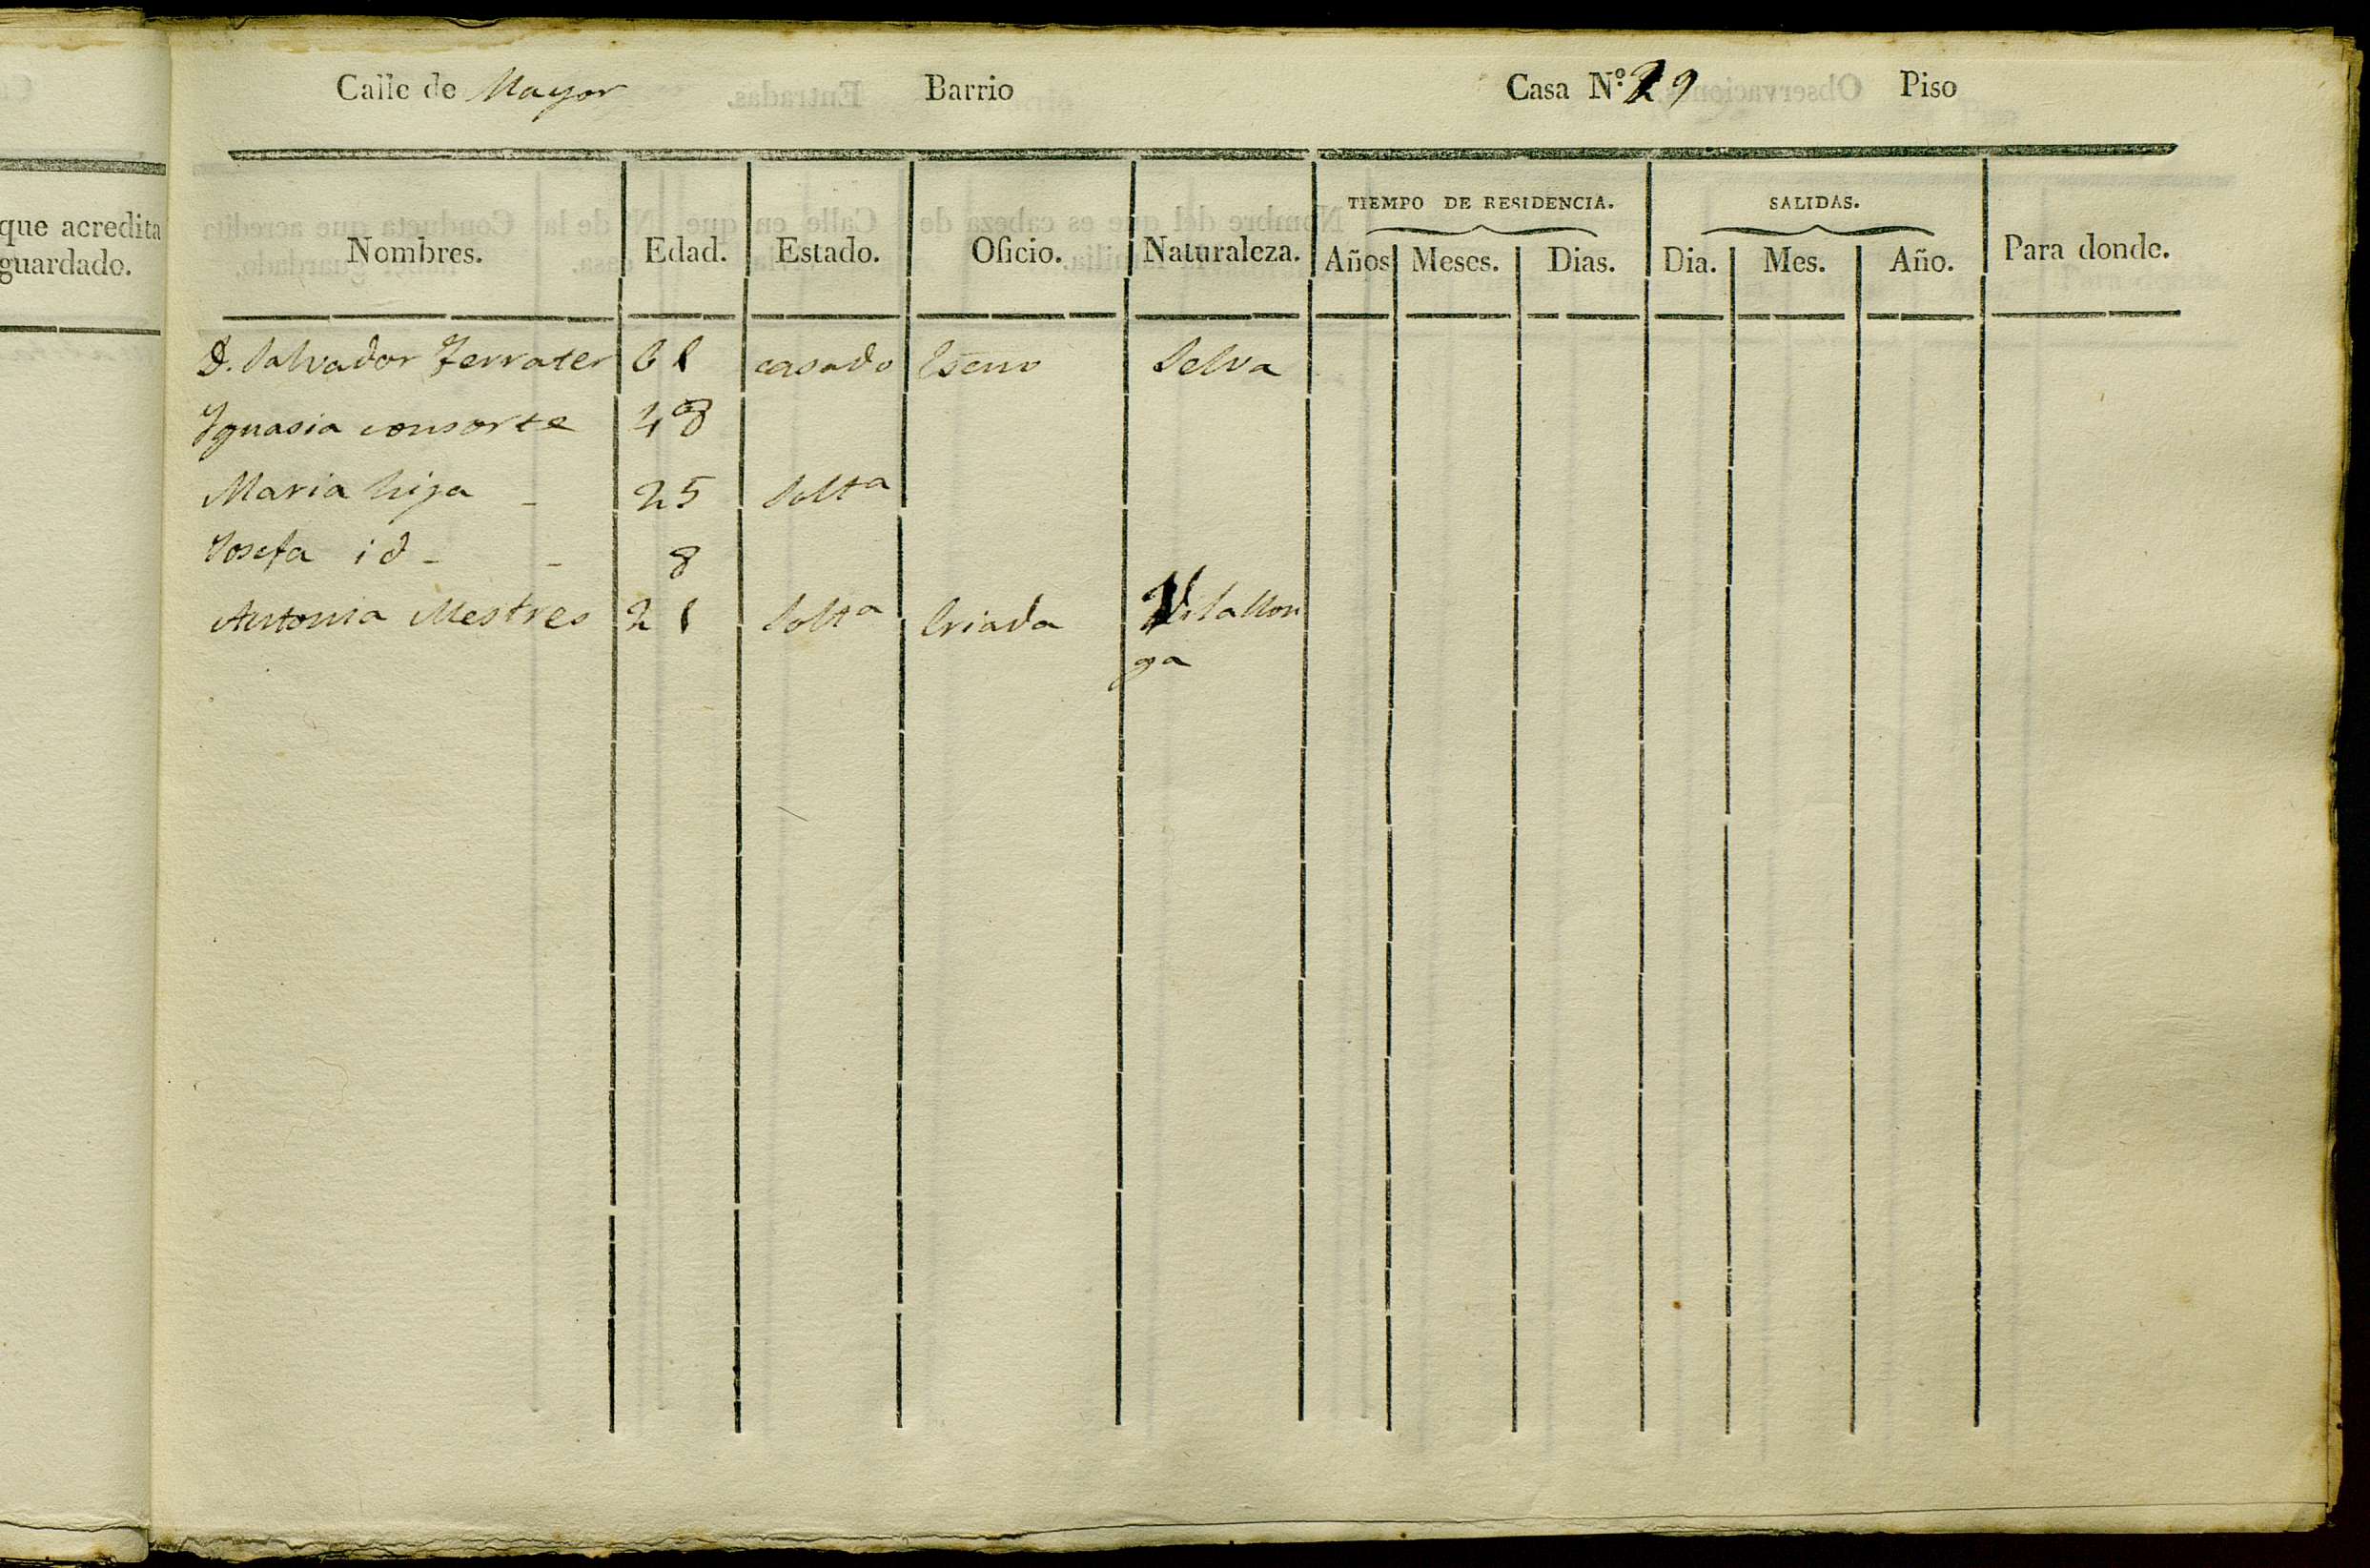 que acredita
guardado.
Calle de Mayor Barrio Casa N.º 29 Piso
TIEMPO DE RESIDENCIA. SALIDAS.
Nombres. Edad. Estado. Oficio. Naturaleza. Años Meses. Dias. Dia. Mes. Año. Para donde.
D. Salvador Ferrater 61 casado Selva
Ignasia consorte 48
Maria hija - 25 Solta
Josefa id - - 8
Antonia Mestres 21 Solta Criada Vilallon
ga